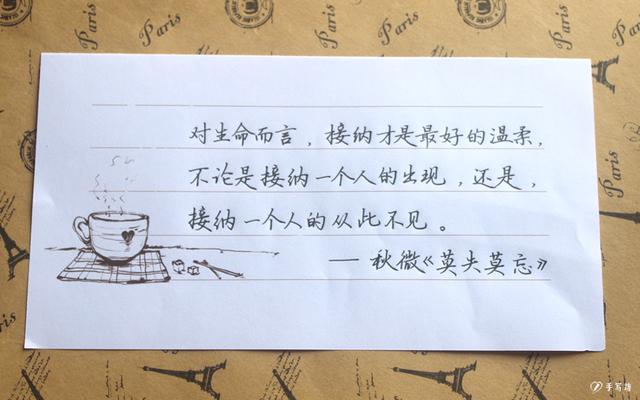 对生命而言，接纳才是最好的温柔，
不论是接纳一个人的出现，还是，
接纳一个人的从此不见。
— 秋微《莫失莫忘》
Paris
Paris
Paris
Paris
Paris
Paris
Paris
手写诗